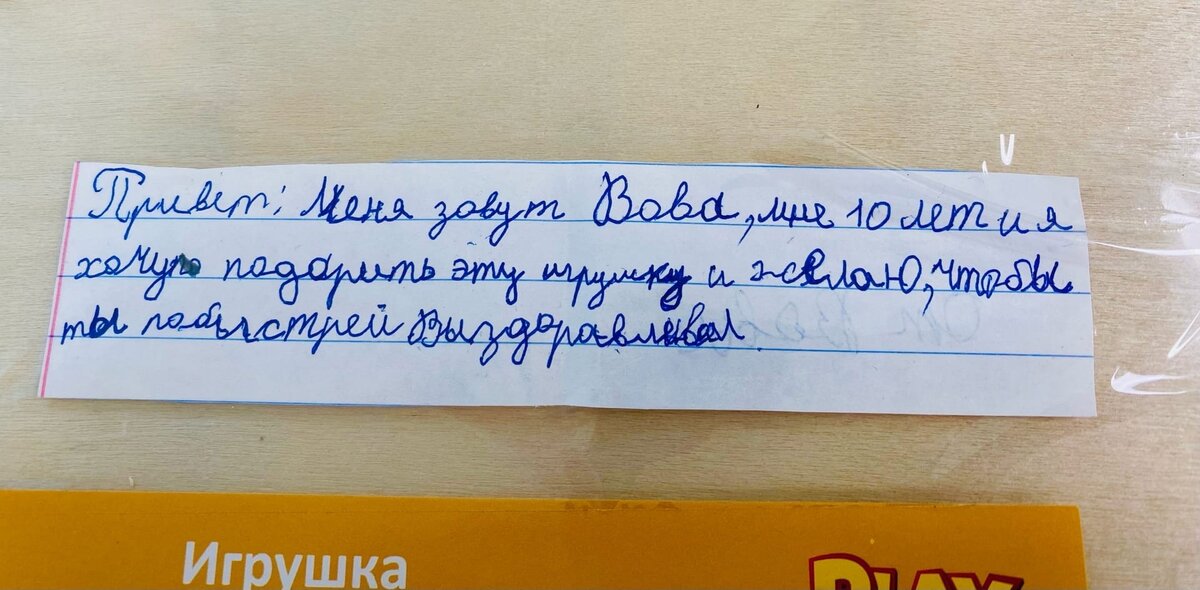 Привет! Меня зовут Вова, мне 10 лет и я
хочу подарить эту игрушку и желаю, чтобы
ты побыстрей выздоравливал
Игрушка
PLAY